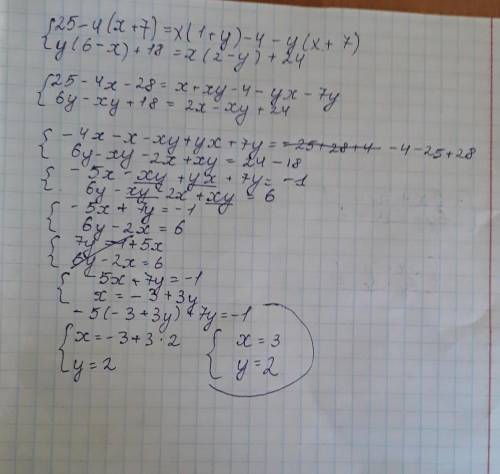 25-4(x+7)=x(1+y)-4-y(x+7)
y(6-x)+18=x(2-y)+24
25-4x-28=x+xy-4-yx-7y
6y-xy+18=2x-xy+24
-4x-x-xy+yx+7y=-25+28+4 -4-25+28
6y-xy-2x+xy=24-18
-5x-xy+yx+7y=-1
6y-xy-2x+xy=6
-5x+7y=-1
6y-2x=6
7y=-1+5x
6y-2x=6
-5x+7y=-1
x=-3+3y
-5(-3+3y)+7y=-1
x=-3+3·2 x=3
y=2 y=2